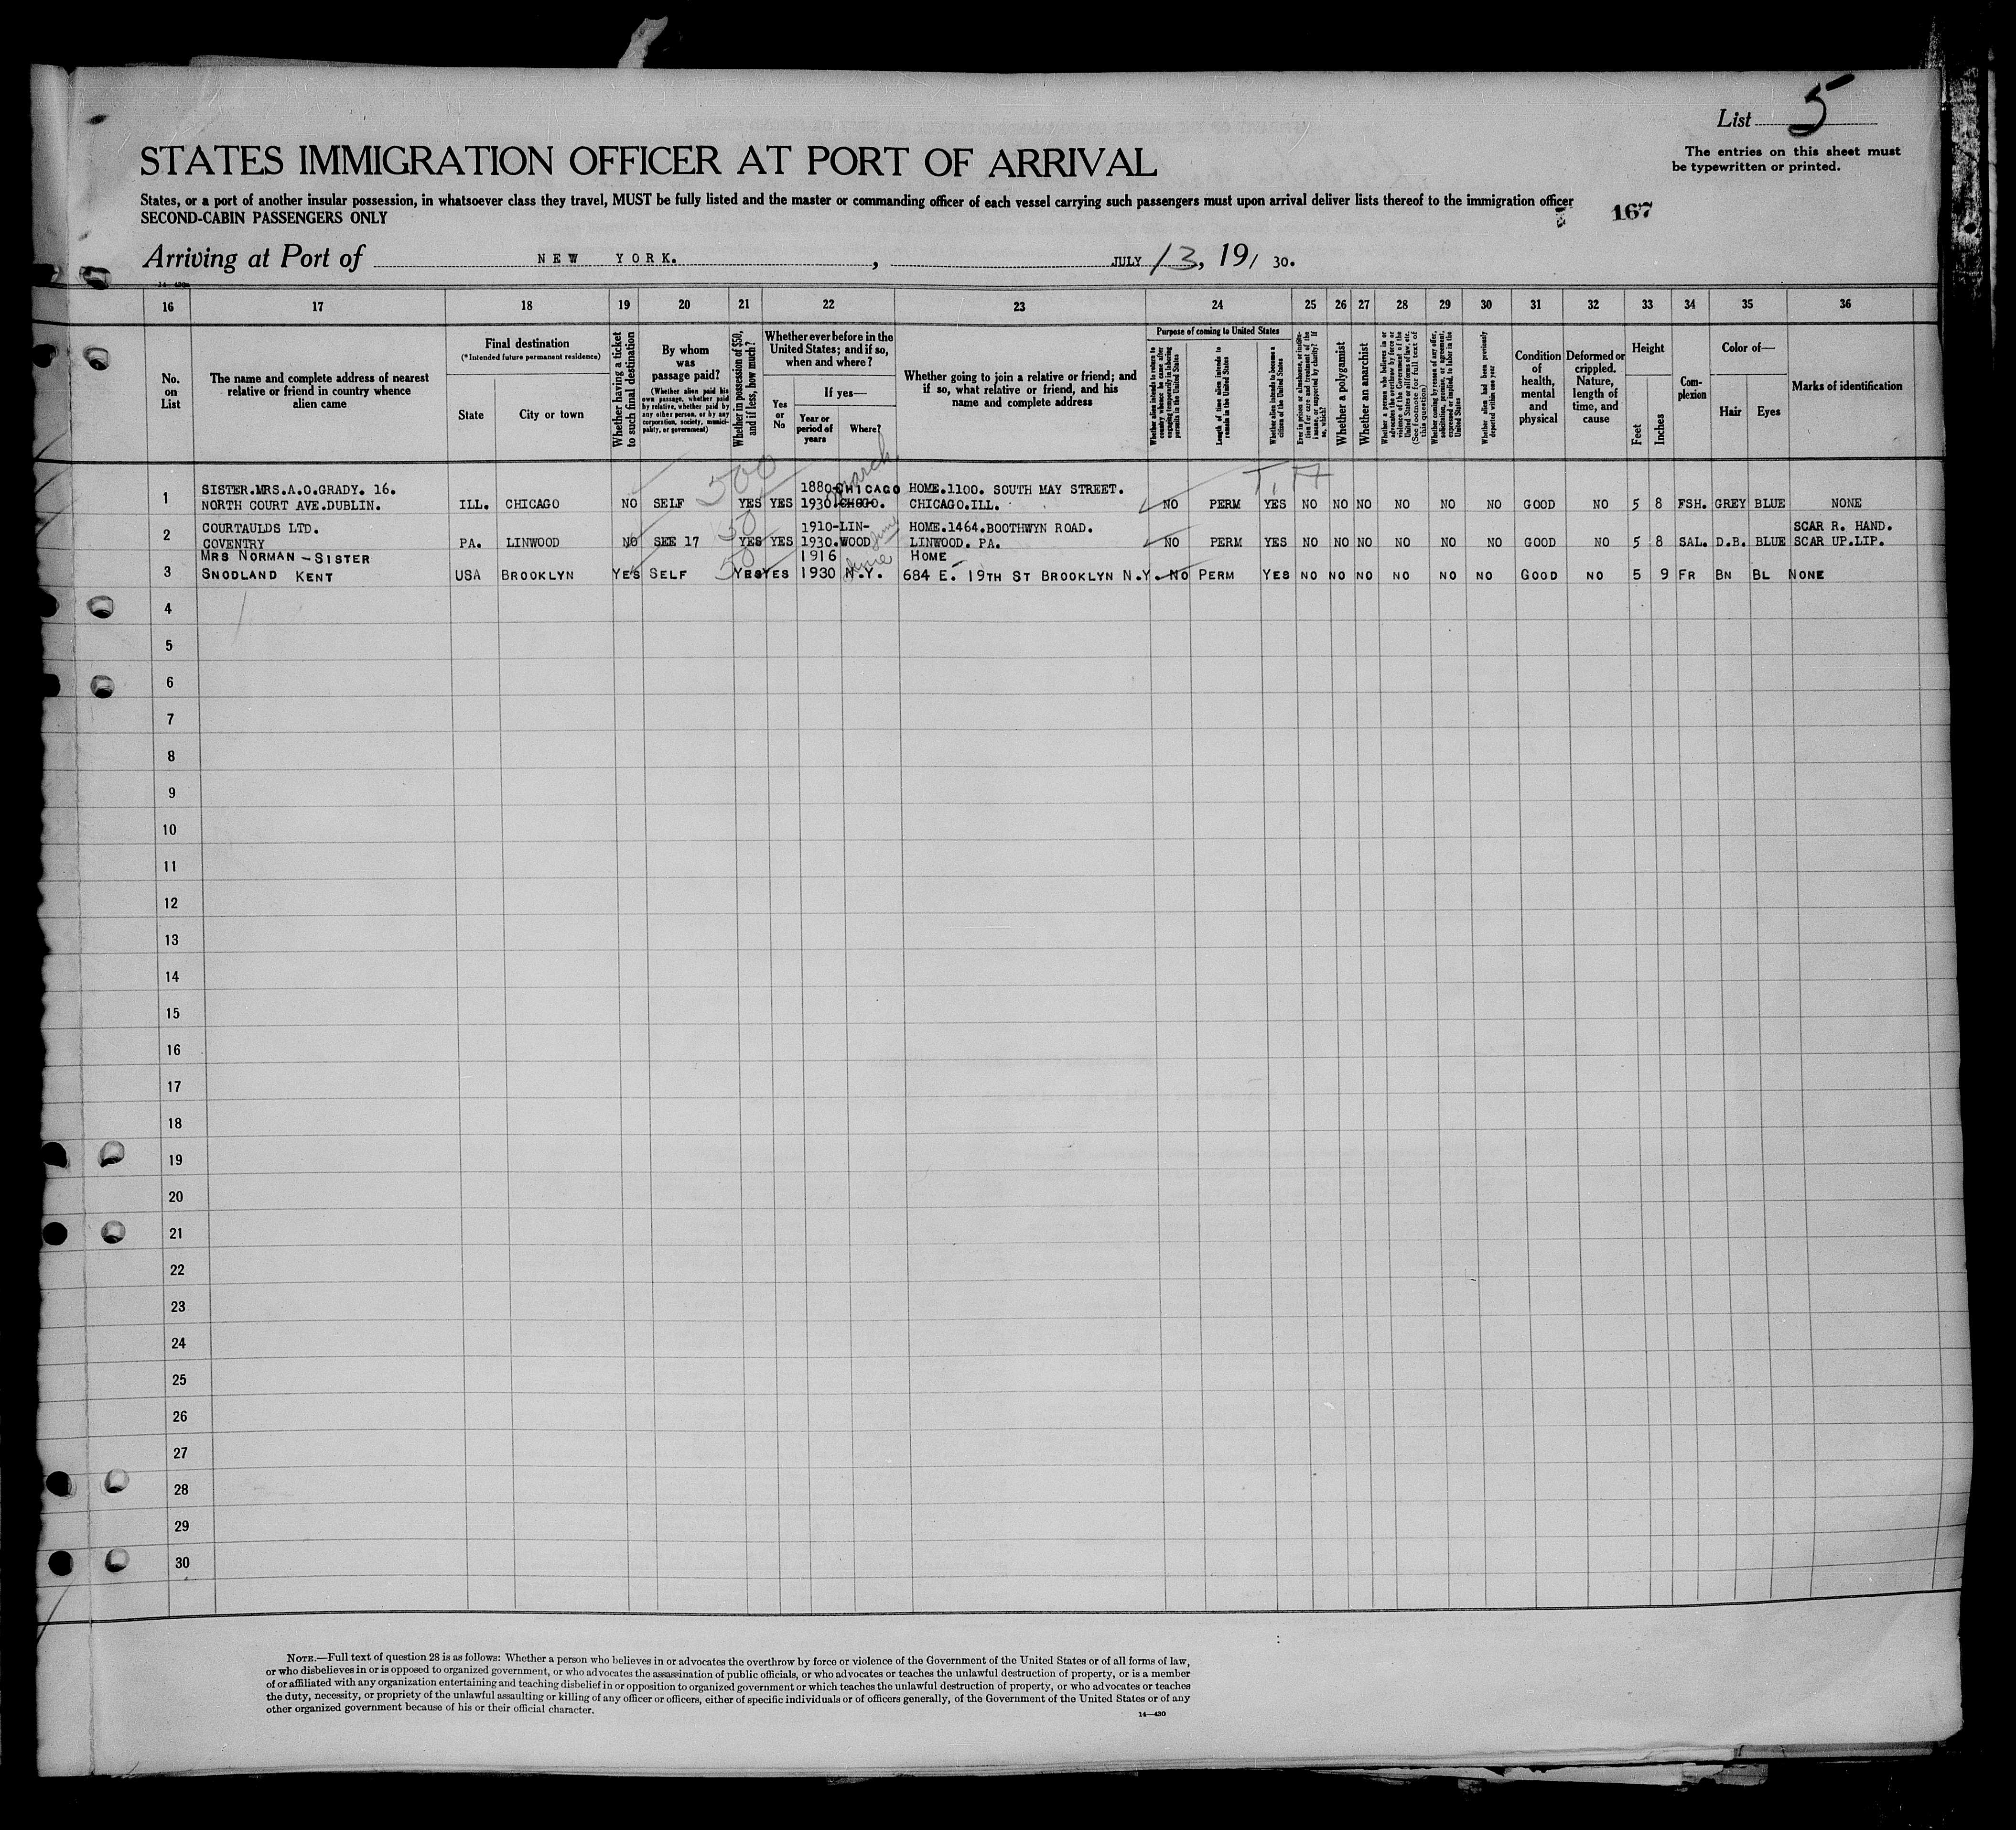 List 5
The entries on this sheet must
be typewritten or printed.
STATES IMMIGRATION OFFICER AT PORT OF ARRIVAL
States, or a port of another insular possession, in whatsoever class they travel, MUST be fully listed and the master or commanding officer of each vessel carrying such passengers must upon arrival deliver lists thereof to the immigration officer
SECOND-CABIN PASSENGERS ONLY
167
Arriving at Port of NEW YORK. , JULY 13, 19 30.
16 17 18 19 20 21 22 23 24 25 26 27 28 29 30 31 32 33 34 35 36
No. on List
The name and complete address of nearest relative or friend in country whence alien came
Final destination
(*Intended future permanent residence)
State
City or town
Whether having a ticket to such final destination
By whom was passage paid?
(Whether alien paid his own passage, whether paid by relative, whether paid by any other person, or by any corporation, society, municipality, or government)
Whether in possession of $50, and if less, how much?
Whether ever before in the United States; and if so, when and where?
Yes or No
If yes—
Year or period of years
Where?
Whether going to join a relative or friend; and if so, what relative or friend, and his name and complete address
Purpose of coming to United States
Whether alien intends to return to country whence he came after engaging temporarily in laboring pursuits in the United States
Length of time alien intends to remain in the United States
Whether alien intends to become a citizen of the United States
Ever in prison or almshouse, or institution for care and treatment of the insane, or supported by charity? If so, which?
Whether a polygamist
Whether an anarchist
Whether a person who believes in or advocates the overthrow by force or violence of the Government of the United States or all forms of law, etc. (See footnote for full text of this question)
Whether coming by reason of any offer, solicitation, promise, or agreement, expressed or implied, to labor in the United States
Whether alien had been previously deported within one year
Condition of health, mental and physical
Deformed or crippled. Nature, length of time, and cause
Height
Feet
Inches
Complexion
Color of—
Hair
Eyes
Marks of identification
500 March T.A
1 SISTER.MRS.A.O.GRADY. 16. NORTH COURT AVE.DUBLIN. ILL. CHICAGO NO SELF YES YES 1880- 1930. CHICAGO CHGO. HOME.1100. SOUTH MAY STREET. CHICAGO.ILL. NO PERM YES NO NO NO NO NO NO GOOD NO 5 8 FSH. GREY BLUE NONE
2 COURTAULDS LTD. COVENTRY PA. LINWOOD NO SEE 17 50 YES YES 1910- 1930. LIN-WOOD HOME.1464.BOOTHWYN ROAD. LINWOOD. PA. NO PERM YES NO NO NO NO NO NO GOOD NO 5 8 SAL. D.B. BLUE SCAR R. HAND. SCAR UP.LIP.
3 MRS NORMAN - SISTER SNODLAND KENT USA BROOKLYN YES SELF 50 YES YES 1916 1930 N.Y. June HOME 684 E. 19TH ST BROOKLYN N.Y. NO PERM YES NO NO NO NO NO NO GOOD NO 5 9 FR BN BL NONE
4
5
6
7
8
9
10
11
12
13
14
15
16
17
18
19
20
21
22
23
24
25
26
27
28
29
30
NOTE.—Full text of question 28 is as follows: Whether a person who believes in or advocates the overthrow by force or violence of the Government of the United States or of all forms of law,
or who disbelieves in or is opposed to organized government, or who advocates the assassination of public officials, or who advocates or teaches the unlawful destruction of property, or is a member
of or affiliated with any organization entertaining and teaching disbelief in or opposition to organized government or which teaches the unlawful destruction of property, or who advocates or teaches
the duty, necessity, or propriety of the unlawful assaulting or killing of any officer or officers, either of specific individuals or of officers generally, of the Government of the United States or of any
other organized government because of his or their official character.
14—430